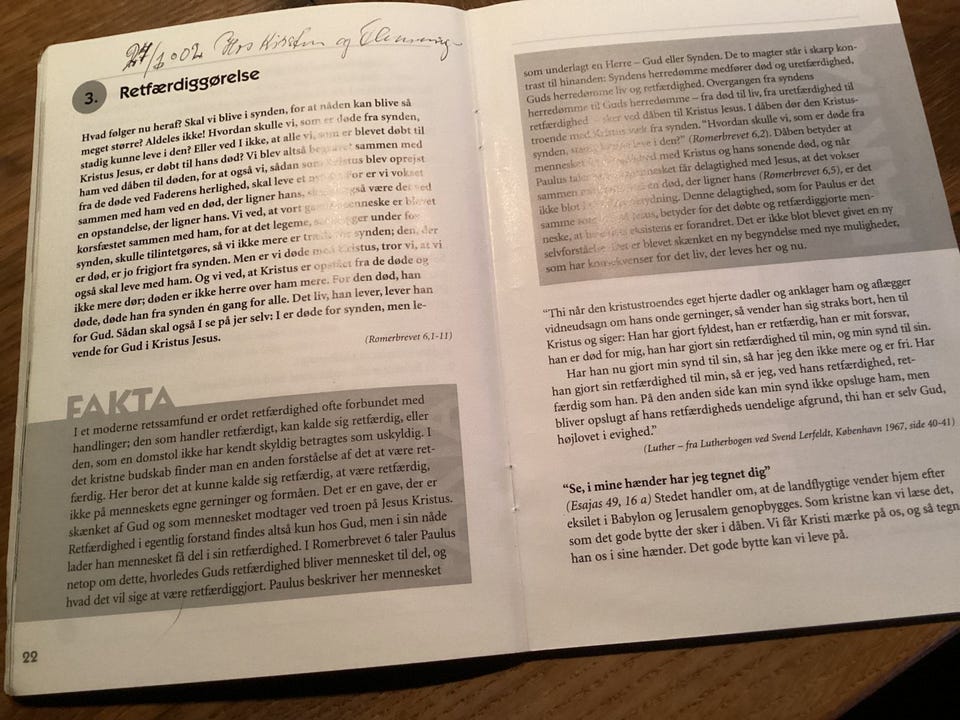 Hos Kirsten og
3. Retfærdiggørelse
Hvad følger nu heraf? Skal vi blive i synden, for at nåden kan blive så
meget større? Aldeles ikke! Hvordan skulle vi, som er døde fra synden,
stadig kunne leve i den? Eller ved I ikke, at alle vi, som er blevet døbt til
Kristus Jesus, er døbt til hans død? Vi blev altså begravet sammen med
ham ved dåben til døden, for at også vi, sådan som Kristus blev oprejst
fra de døde ved Faderens herlighed, skal leve et nyt liv. For er vi vokset
sammen med ham ved en død, der ligner hans, skal vi også være det ved
en opstandelse, der ligner hans. Vi ved, at vort gamle menneske er blevet
korsfæstet sammen med ham, for at det legeme, som ligger under for
synden, skulle tilintetgøres, så vi ikke mere er trælle for synden; den, der
er død, er jo frigjort fra synden. Men er vi døde med Kristus, tror vi, at vi
også skal leve med ham. Og vi ved, at Kristus er opstået fra de døde og
ikke mere dør; døden er ikke herre over ham mere. For den død, han
døde, døde han fra synden én gang for alle. Det liv, han lever, lever han
for Gud. Sådan skal også I se på jer selv: I er døde for synden, men le-
vende for Gud i Kristus Jesus.
(Romerbrevet 6,1-11)
FAKTA
I et moderne retssamfund er ordet retfærdighed ofte forbundet med
handlinger; den som handler retfærdigt, kan kalde sig retfærdig, eller
den, som en domstol ikke har kendt skyldig betragtes som uskyldig. I
det kristne budskab finder man en anden forståelse af det at være ret-
færdig. Her beror det at kunne kalde sig retfærdig, at være retfærdig,
ikke på menneskets egne gerninger og formåen. Det er en gave, der er
skænket af Gud og som mennesket modtager ved troen på Jesus Kristus.
Retfærdighed i egentlig forstand findes altså kun hos Gud, men i sin nåde
lader han mennesket få del i sin retfærdighed. I Romerbrevet 6 taler Paulus
netop om dette, hvorledes Guds retfærdighed bliver mennesket til del, og
hvad det vil sige at være retfærdiggjort. Paulus beskriver her mennesket
22
som underlagt en Herre – Gud eller Synden. De to magter står i skarp kon-
trast til hinanden: Syndens herredømme medfører død og uretfærdighed,
Guds herredømme liv og retfærdighed. Overgangen fra syndens
herredømme til Guds herredømme – fra død til liv, fra uretfærdighed til
retfærdighed – sker ved dåben til Kristus Jesus. I dåben dør den Kristus-
troende med Kristus væk fra synden. "Hvordan skulle vi, som er døde fra
synden, stadig kunne leve i den?" (Romerbrevet 6,2). Dåben betyder at
mennesket med Kristus og hans sonende død, og når
Paulus taler mennesket får delagtighed med Jesus, at det vokser
sammen med en død, der ligner hans (Romerbrevet 6,5), er det
ikke blot betydning. Denne delagtighed, som for Paulus er det
samme som Jesus, betyder for det døbte og retfærdiggjorte men-
neske, at eksistens er forandret. Det er ikke blot blevet givet en ny
selvforståelse. Det er blevet skænket en ny begyndelse med nye muligheder,
som har konsekvenser for det liv, der leves her og nu.
"Thi når den kristustroendes eget hjerte dadler og anklager ham og aflægger
vidneudsagn om hans onde gerninger, så vender han sig straks bort, hen til
Kristus og siger: Han har gjort fyldest, han er retfærdig, han er mit forsvar,
han er død for mig, han har gjort sin retfærdighed til min, og min synd til sin.
Har han nu gjort min synd til sin, så har jeg den ikke mere og er fri. Har
han gjort sin retfærdighed til min, så er jeg, ved hans retfærdighed, ret-
færdig som han. På den anden side kan min synd ikke opsluge ham, men
bliver opslugt af hans retfærdigheds uendelige afgrund, thi han er selv Gud,
højlovet i evighed."
(Luther – fra Lutherbogen ved Svend Lerfeldt, København 1967, side 40-41)
"Se, i mine hænder har jeg tegnet dig"
(Esajas 49, 16 a) Stedet handler om, at de landflygtige vender hjem efter
eksilet i Babylon og Jerusalem genopbygges. Som kristne kan vi læse det,
som det gode bytte der sker i dåben. Vi får Kristi mærke på os, og så tegn
han os i sine hænder. Det gode bytte kan vi leve på.